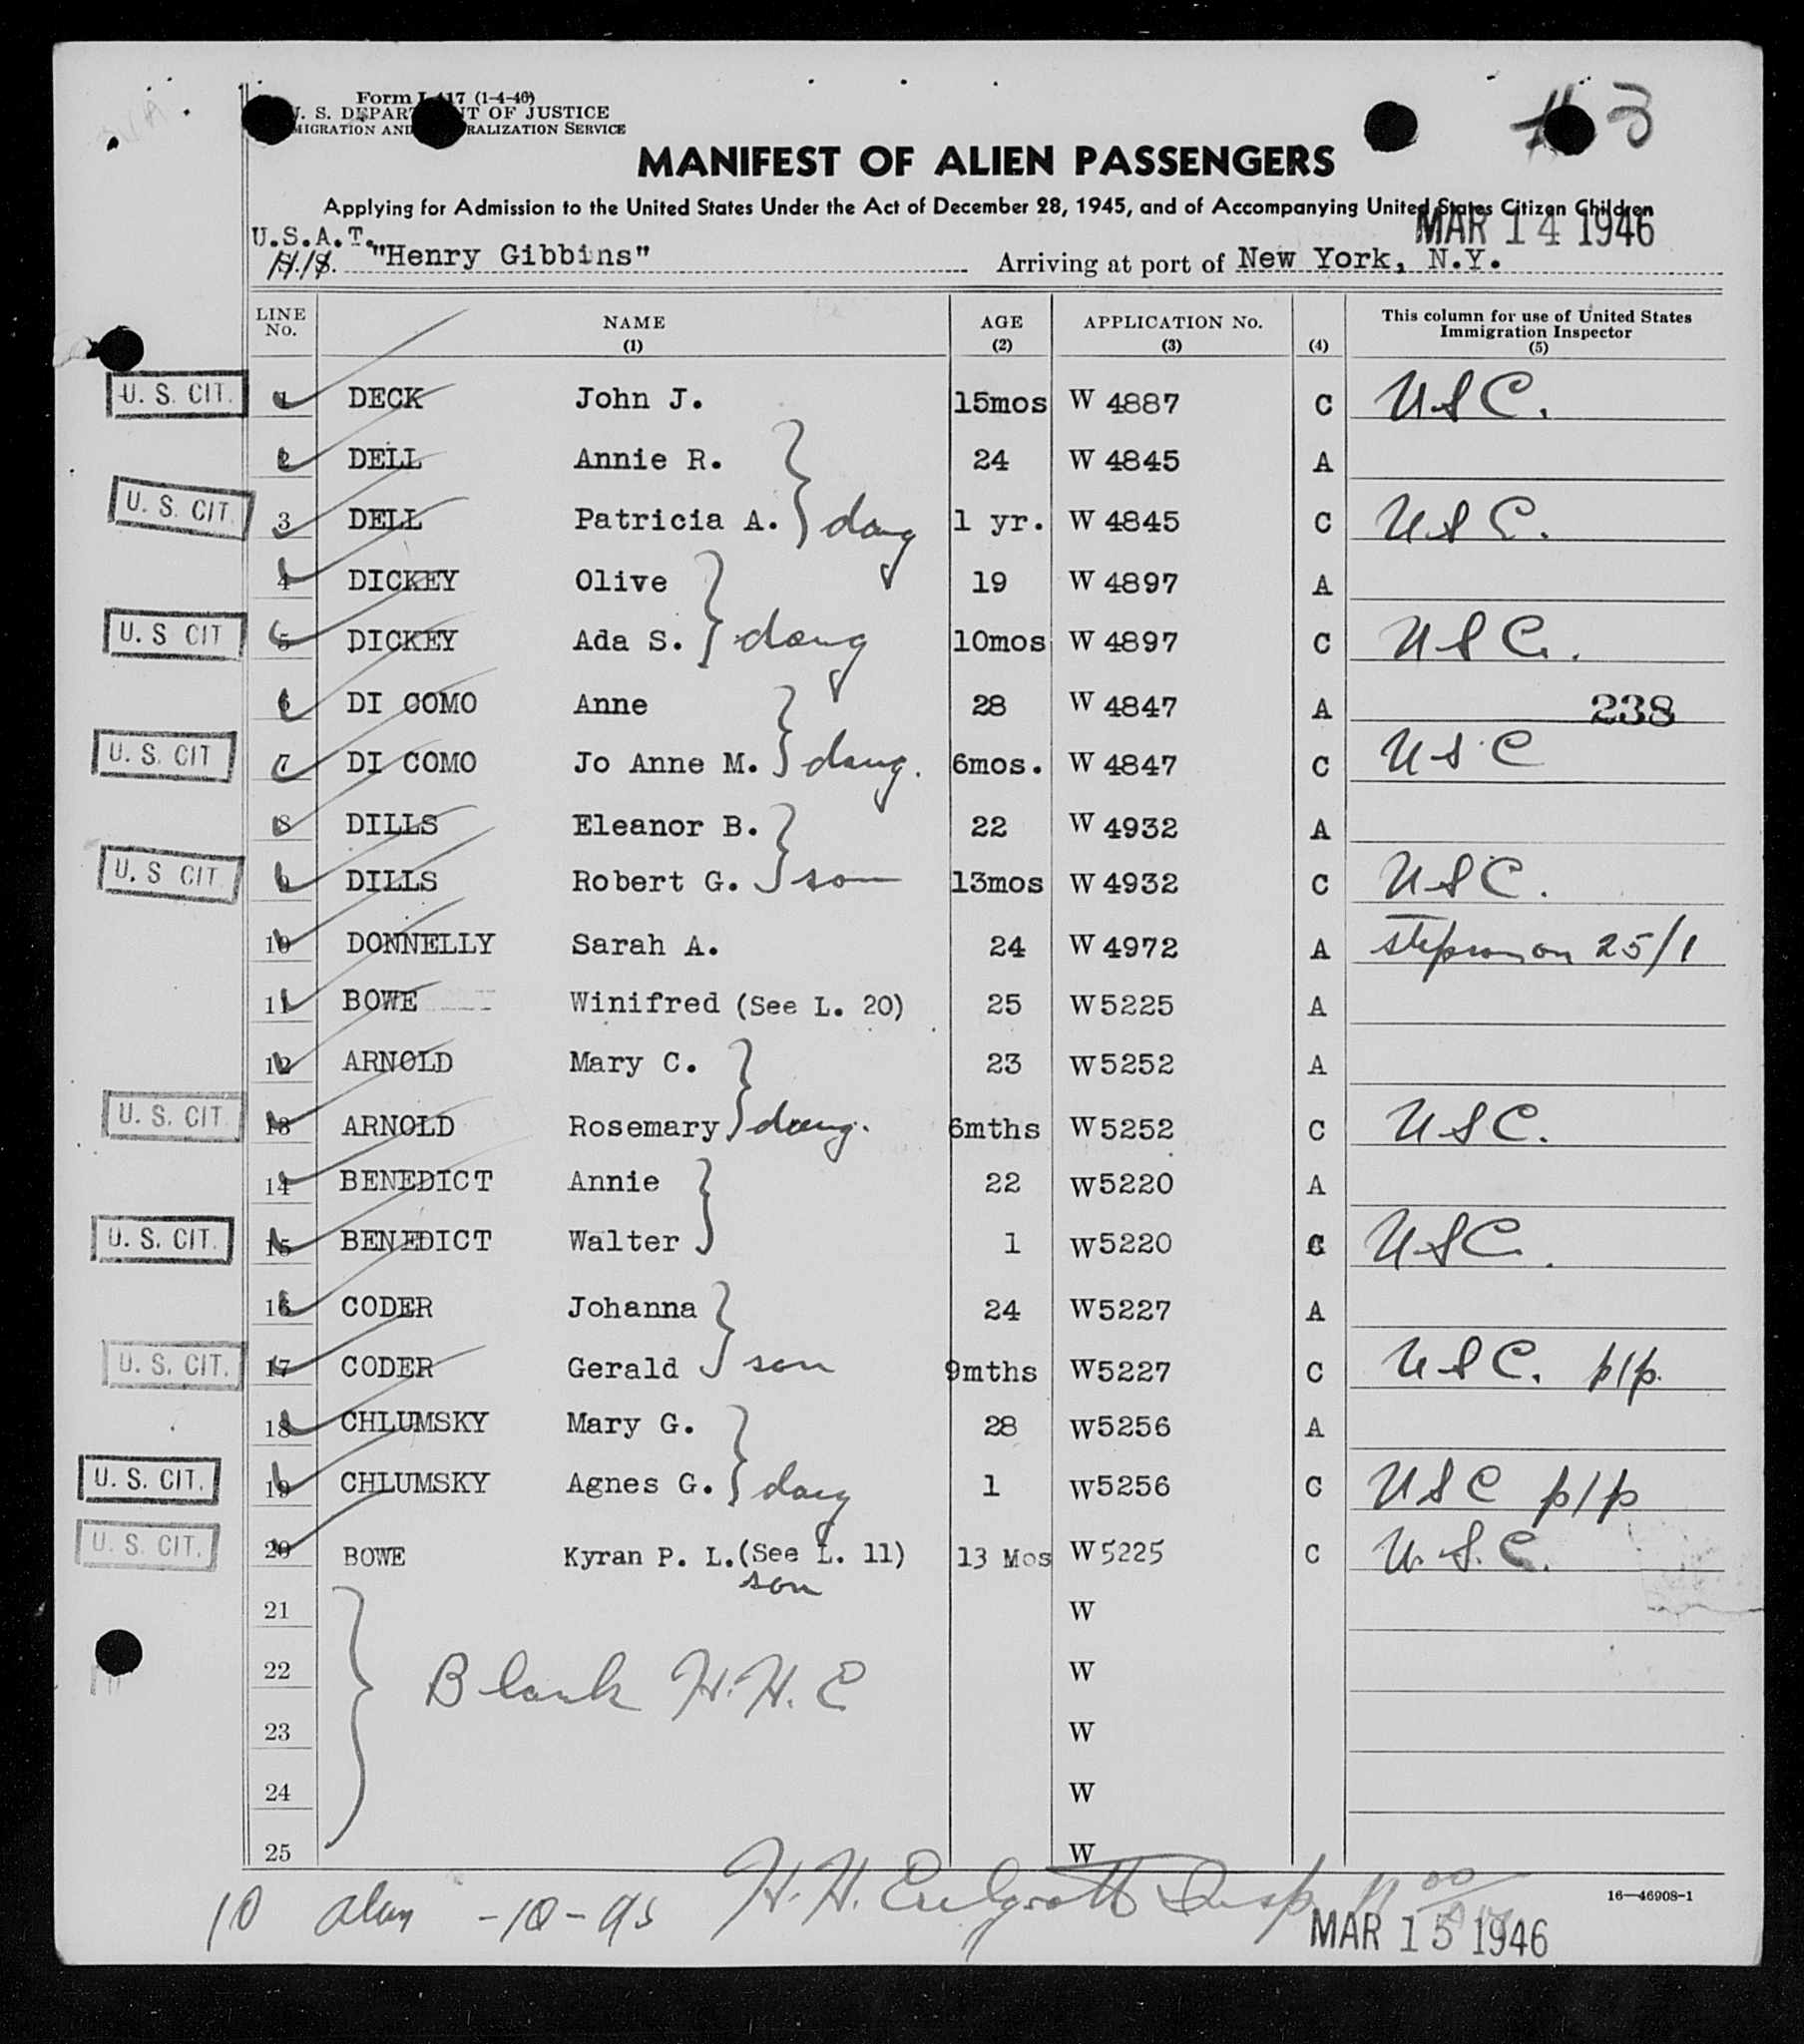 #3
Form I-417 (1-4-46)
U. S. DEPARTMENT OF JUSTICE
IMMIGRATION AND NATURALIZATION SERVICE
MANIFEST OF ALIEN PASSENGERS
Applying for Admission to the United States Under the Act of December 28, 1945, and of Accompanying United States Citizen Children
MAR 14 1946
U.S.A.T.
"Henry Gibbins" Arriving at port of New York, N.Y.
LINE No. NAME (1) AGE (2) APPLICATION No. (3) (4) This column for use of United States Immigration Inspector (5)
U. S. CIT. 1 DECK John J. 15mos W 4887 C USC.
2 DELL Annie R. 24 W 4845 A
U. S. CIT. 3 DELL Patricia A. daug 1 yr. W 4845 C USC.
4 DICKEY Olive 19 W 4897 A
U. S CIT 5 DICKEY Ada S. daug 10mos W 4897 C USC.
6 DI COMO Anne 28 W 4847 A 238
U. S. CIT 7 DI COMO Jo Anne M. daug. 6mos. W 4847 C USC
8 DILLS Eleanor B. 22 W 4932 A
U. S CIT 9 DILLS Robert G. son 13mos W 4932 C USC.
10 DONNELLY Sarah A. 24 W 4972 A stepson on 25/1
11 BOWE Winifred (See L. 20) 25 W 5225 A
12 ARNOLD Mary C. 23 W 5252 A
U. S. CIT. 13 ARNOLD Rosemary daug. 6mths W 5252 C USC.
14 BENEDICT Annie 22 W 5220 A
U. S. CIT. 15 BENEDICT Walter 1 W 5220 C USC.
16 CODER Johanna 24 W 5227 A
U. S. CIT. 17 CODER Gerald son 9mths W 5227 C USC. p/p.
18 CHLUMSKY Mary G. 28 W 5256 A
U. S. CIT. 19 CHLUMSKY Agnes G. daug 1 W 5256 C USC p/p
U. S. CIT. 20 BOWE Kyran P. L. (See L. 11) 13 Mos W 5225 C U.S.C.
son
21 W
22 Blank H.H.E W
23 W
24 W
25 W
16—46908-1
10 alan -10-
H.H. Insp
MAR 15 1946